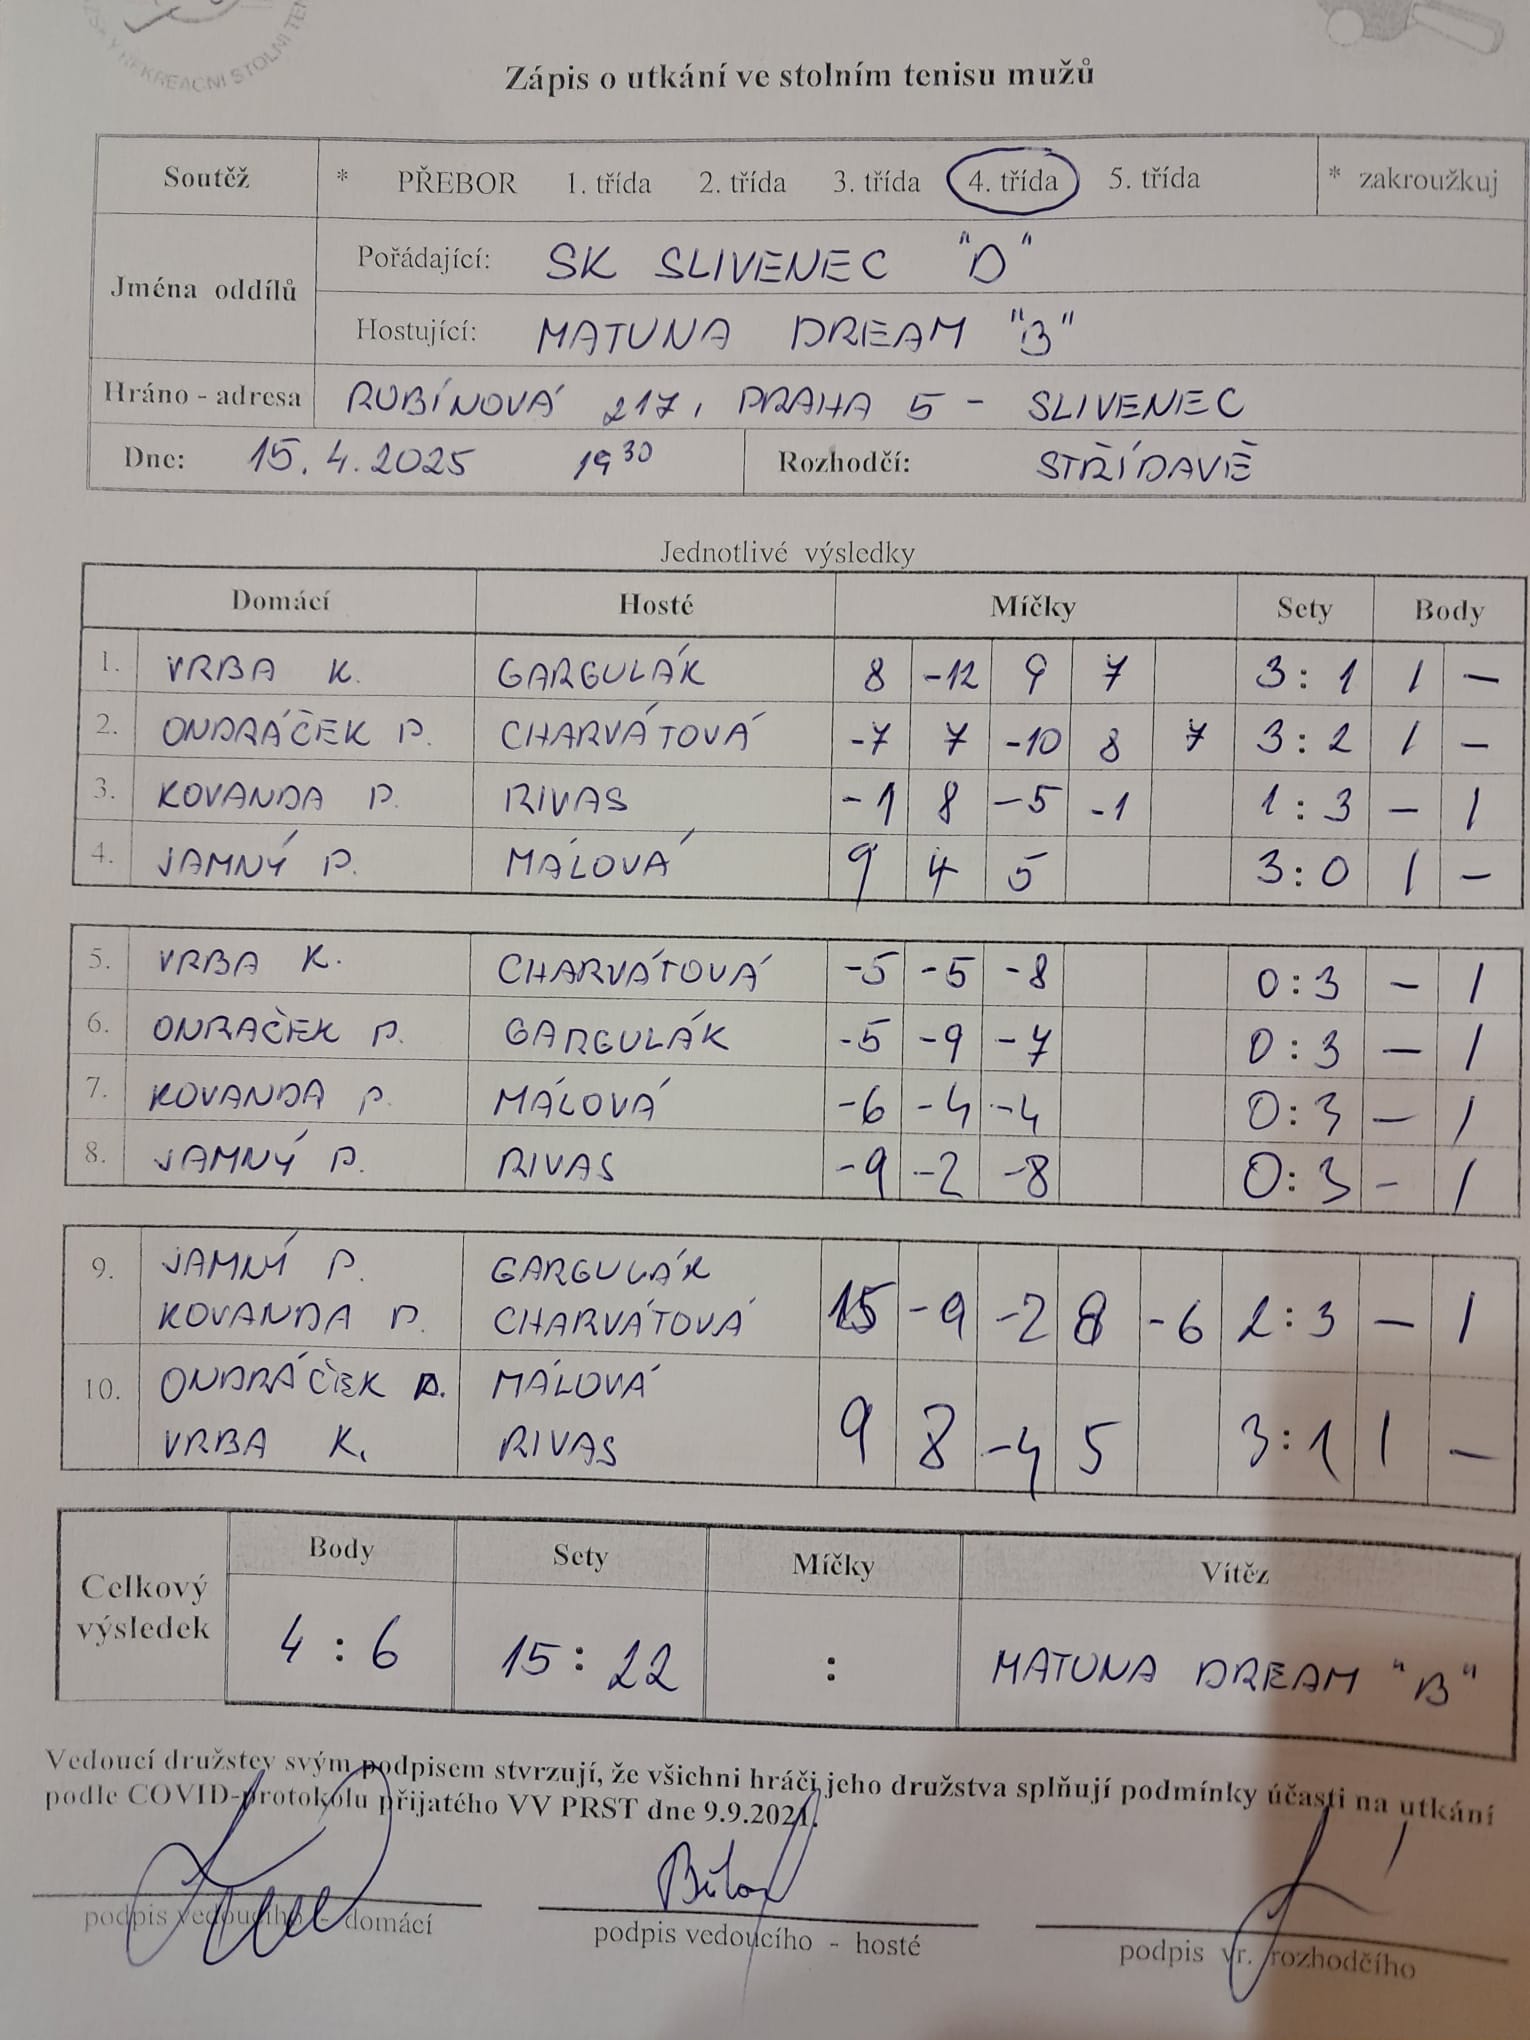 REKREAČNÍ STOLNÍ TEN
Zápis o utkání ve stolním tenisu mužů
Soutěž * PŘEBOR 1. třída 2. třída 3. třída 4. třída 5. třída * zakroužkuj
Jména oddílů
Pořádající: SK SLIVENEC "D"
Hostující: MATUNA DREAM "B"
Hráno - adresa RUBÍNOVÁ 217, PRAHA 5 - SLIVENEC
Dne: 15.4.2025 19 30 Rozhodčí: STŘÍDAVĚ
Jednotlivé výsledky
Domácí Hosté Míčky Sety Body
1. VRBA K. GARGULÁK 8 -12 9 7 3:1 1 -
2. ONDRÁČEK P. CHARVÁTOVÁ -7 7 -10 8 7 3:2 1 -
3. KOVANDA P. RIVAS -1 8 -5 -1 1:3 - 1
4. JAMNÝ P. MÁLOVÁ 9 4 5 3:0 1 -
5. VRBA K. CHARVÁTOVÁ -5 -5 -8 0:3 - 1
6. ONRAČEK P. GARGULÁK -5 -9 -7 0:3 - 1
7. KOVANDA P. MÁLOVÁ -6 -4 -4 0:3 - 1
8. JAMNÝ P. RIVAS -9 -2 -8 0:3 - 1
9. JAMNÝ P. GARGULÁK
KOVANDA P. CHARVÁTOVÁ 15 -9 -2 8 -6 2:3 - 1
10. ONDRÁČEK P. MÁLOVÁ
VRBA K. RIVAS 9 8 -4 5 3:1 1 -
Celkový výsledek
Body Sety Míčky Vítěz
4:6 15:22 : MATUNA DREAM "B"
Vedoucí družstev svým podpisem stvrzují, že všichni hráči jeho družstva splňují podmínky účasti na utkání
podle COVID-protokolu přijatého VV PRST dne 9.9.2021.
podpis vedoucího - domácí podpis vedoucího - hosté podpis vr. rozhodčího